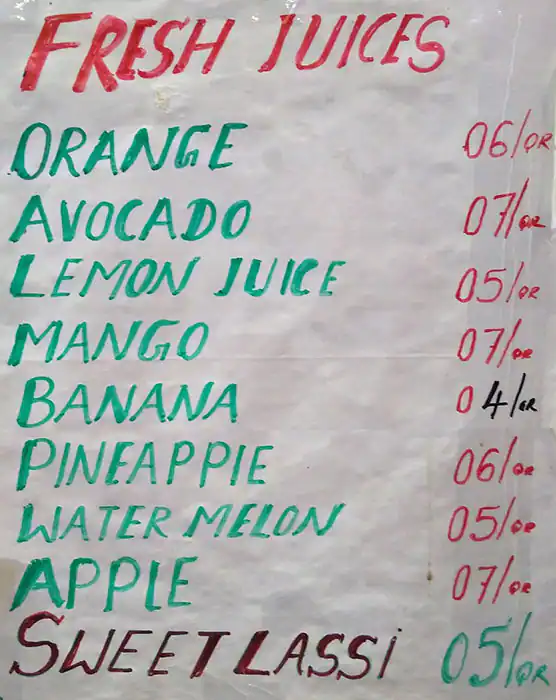 FRESH JUICES
ORANGE 06/QR
AVOCADO 07/QR
LEMON JUICE 05/QR
MANGO 07/QR
BANANA 04/QR
PINEAPPLE 06/QR
WATER MELON 05/QR
APPLE 07/QR
SWEET LASSI 05/QR